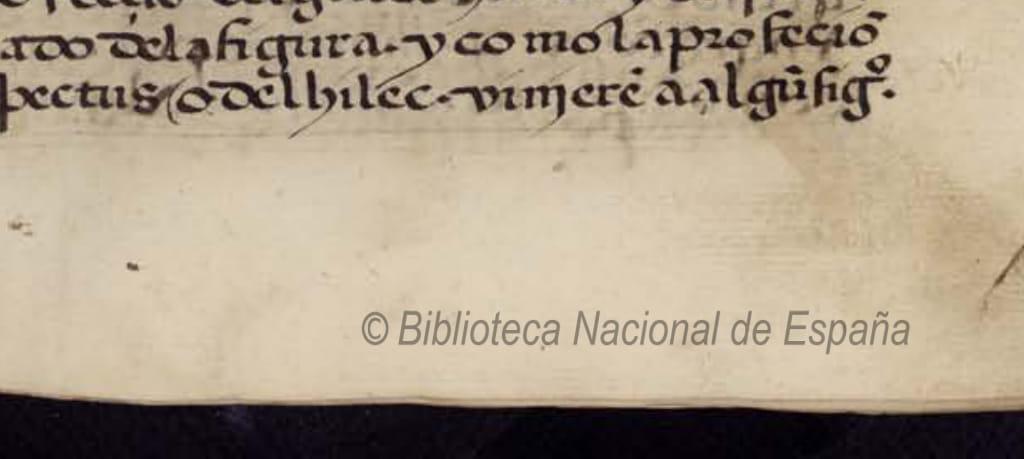 ado dela figura. y como la profeciõ
pectus / o del hilec. vinjerẽ a algũ sigº.
© Biblioteca Nacional de España